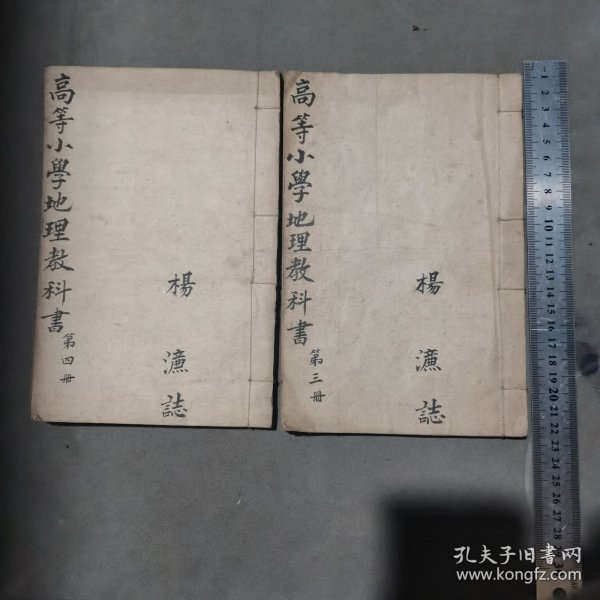 高等小學地理教科書
第四冊
楊㵘誌
高等小學地理教科書
第三冊
楊㵘誌
1 2 3 4 5 6 7 8 9 10 11 12 13 14 15 16 17 18 19 20 21 22 23 24 25 26 27 28
孔夫子旧书网
www.kongfz.com